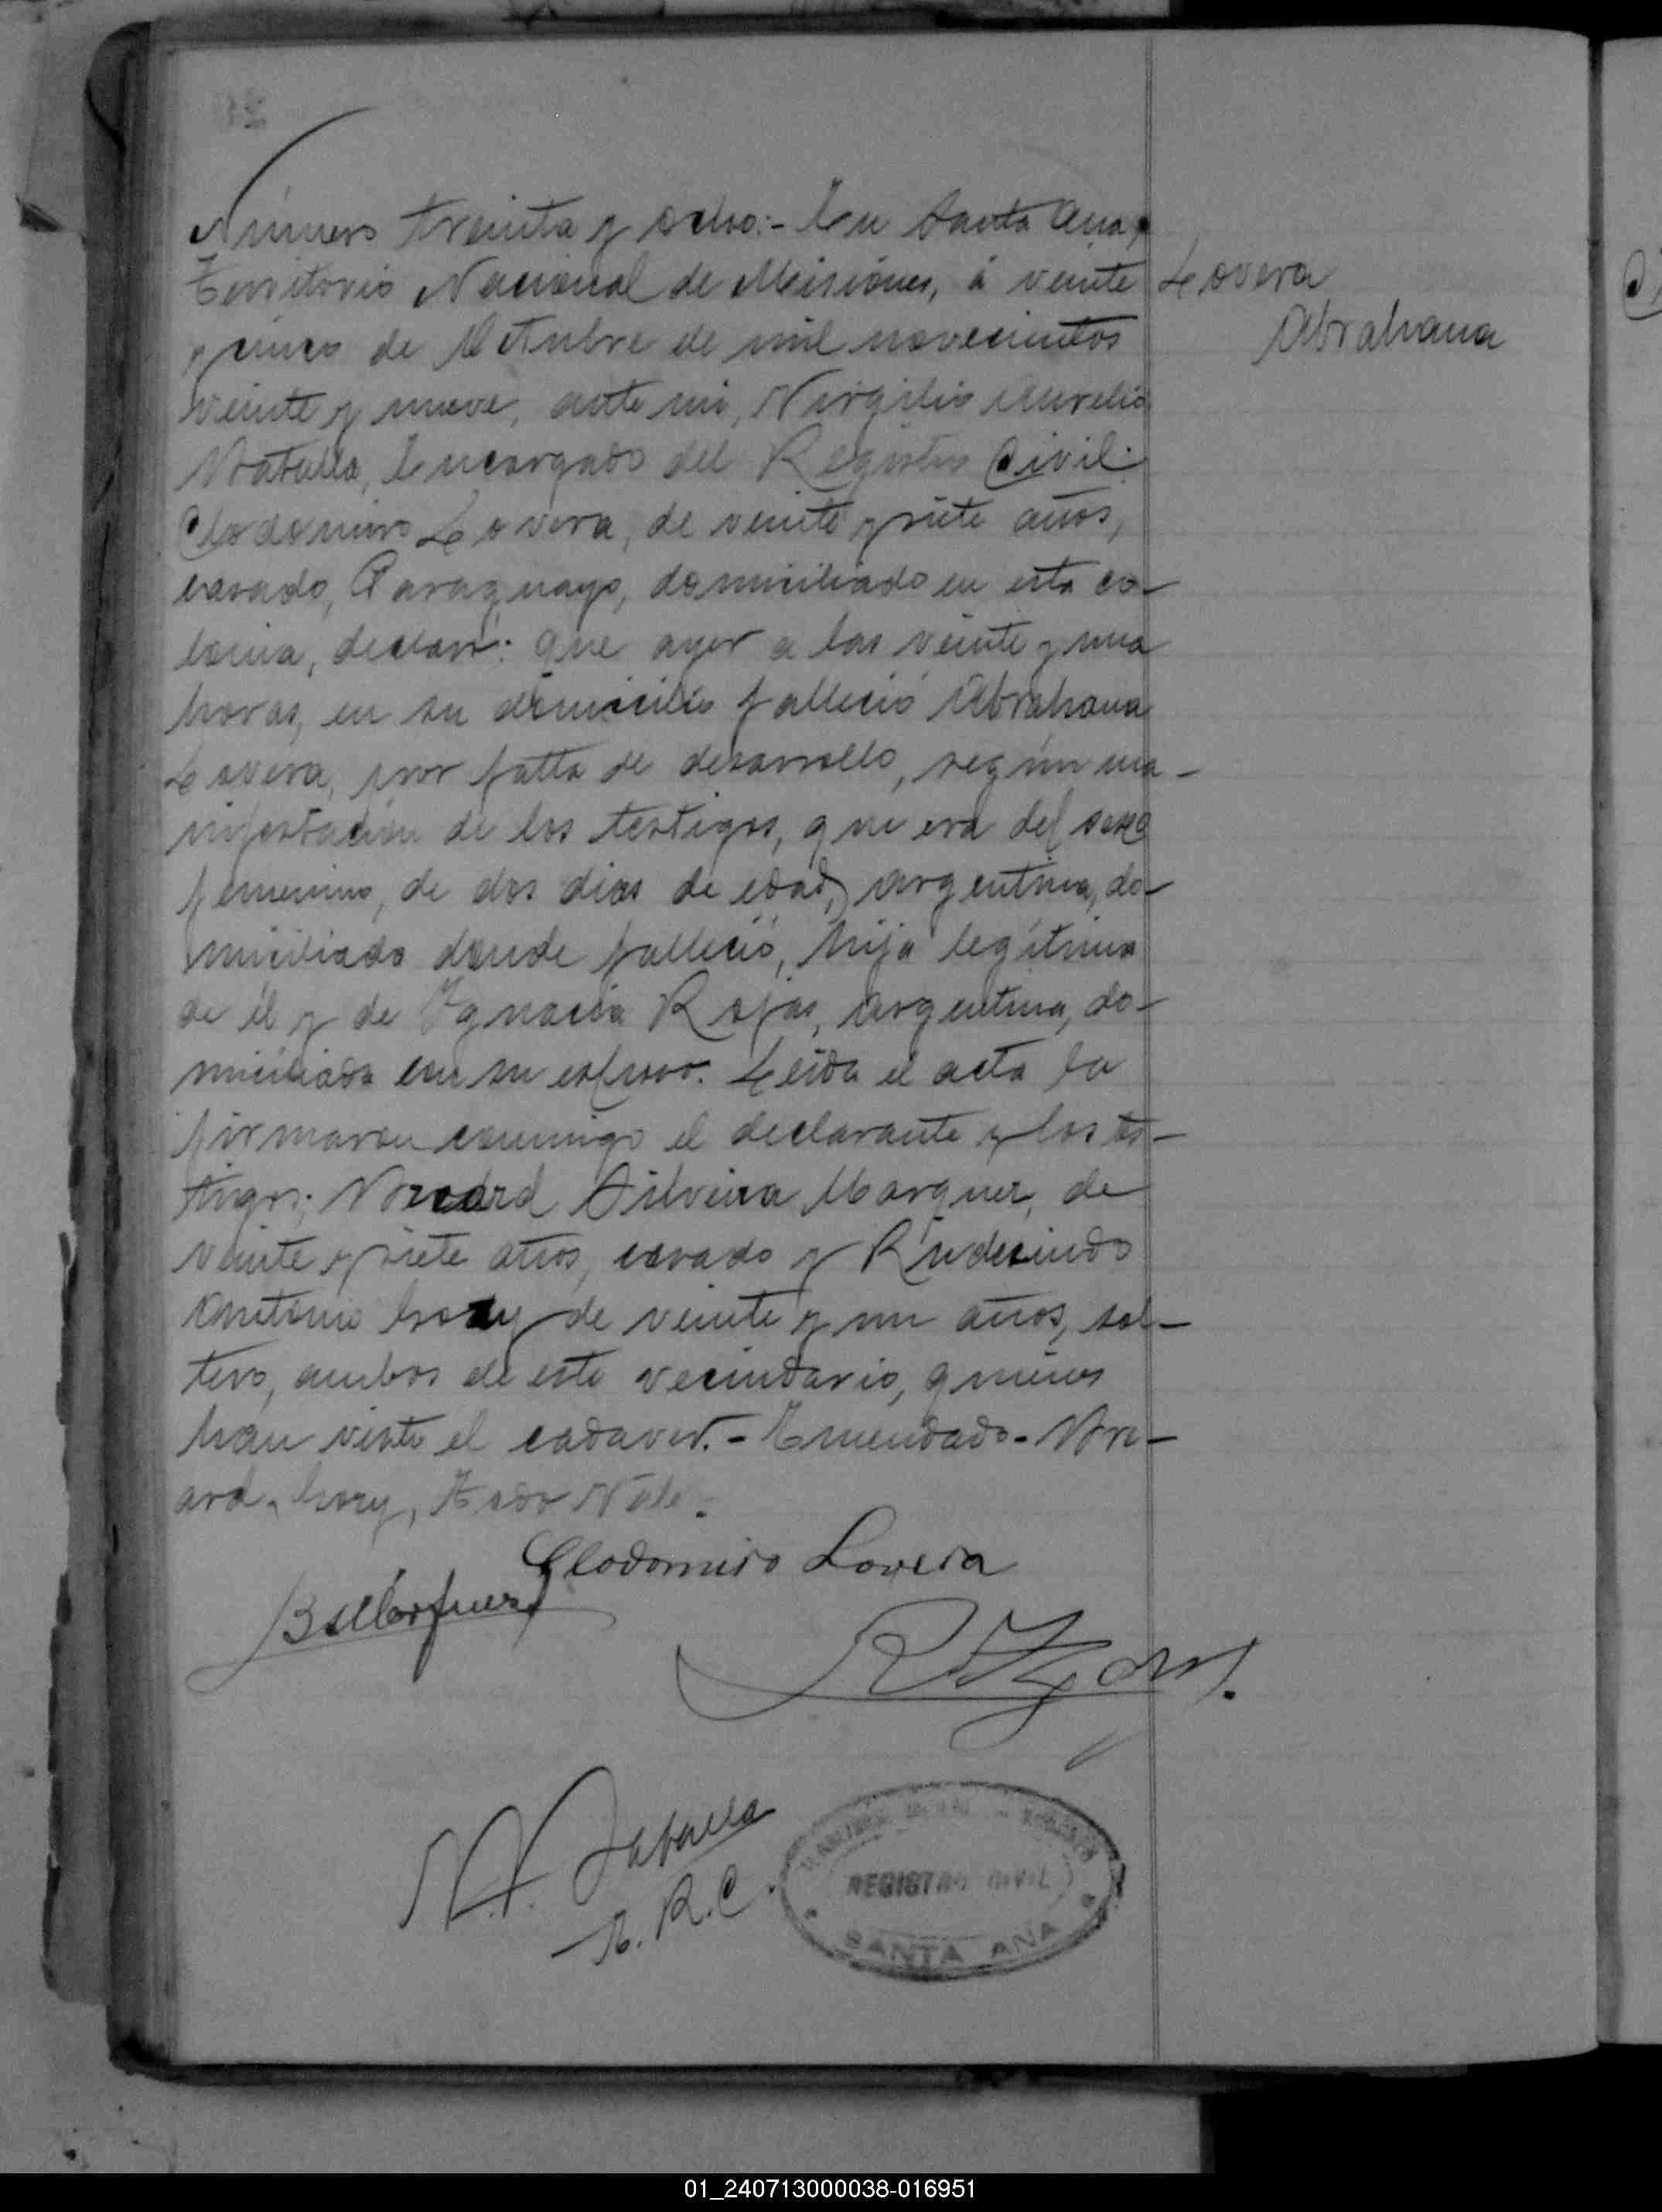 Número treinta y ocho:- En Santa Ana,
Territorio Nacional de Misiones, á veinte
y cinco de Octubre de mil novecientos
veinte y nueve, ante mi, Virgilio Aurelio
Batalla, Encargado del Registro Civil:
Clodomiro Lovera, de veinte y siete años,
casado, Paraguayo, domiciliado en esta co-
lonia, declaró: que ayer a las veinte y una
horas, en su domicilio falleció Abrahana
Lovera, por falta de desarrollo, según ma-
nifestación de los testigos, que era del sexo
femenino, de dos dias de edad, argentina, do-
miciliada donde falleció, hija legítima
de él y de Ignacia Rojas, argentina, do-
miciliada con su esposo. Leida el acta la
firmaron conmigo el declarante y los tes-
tigos; Silveira Marquez, de
veinte y siete años, casado y Rudecindo
Antonio de veinte y un años, sol-
tero, ambos de este vecindario, quienes
han visto el cadaver.- Enmendado-
Todo Vale.
Lovera
Abrahana
Clodomiro Lovera
V.A. Batalla
E. R. C.
REGISTRO CIVIL
SANTA ANA
01_240713000038-016951